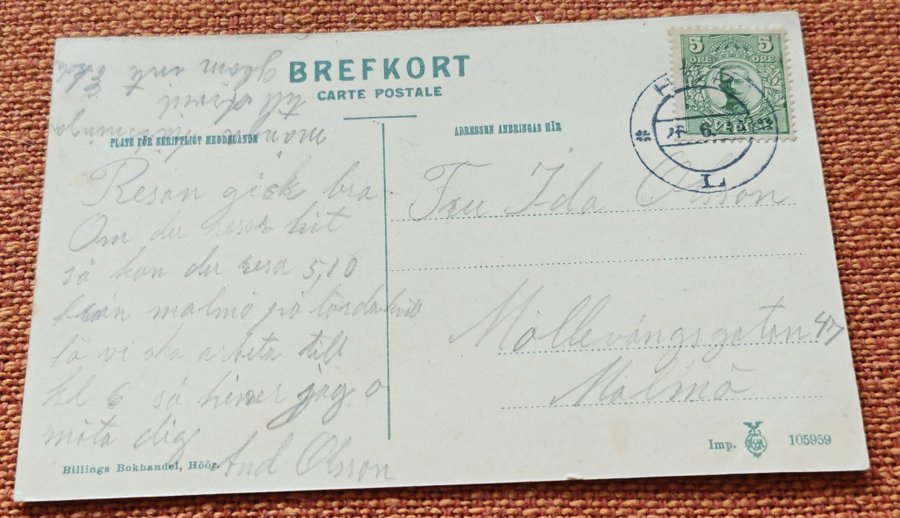 BREFKORT
CARTE POSTALE
PLATS FÖR SKRIFTLIGT MEDDELANDE
ADRESSEN ANBRINGAS HÄR
5 5
ÖRE ÖRE
L
Resan gick bra
Om du reser hit
så kan du resa 5,10
från malmö på lördakväll
få vi ska arbeta till
kl 6 så hiner jag o
möta dig
And Olsson
glöm inte
till
Fru Ida Olsson
Möllevångsgatan 47
Malmö
Billings Bokhandel, Höör.
Imp. 105959